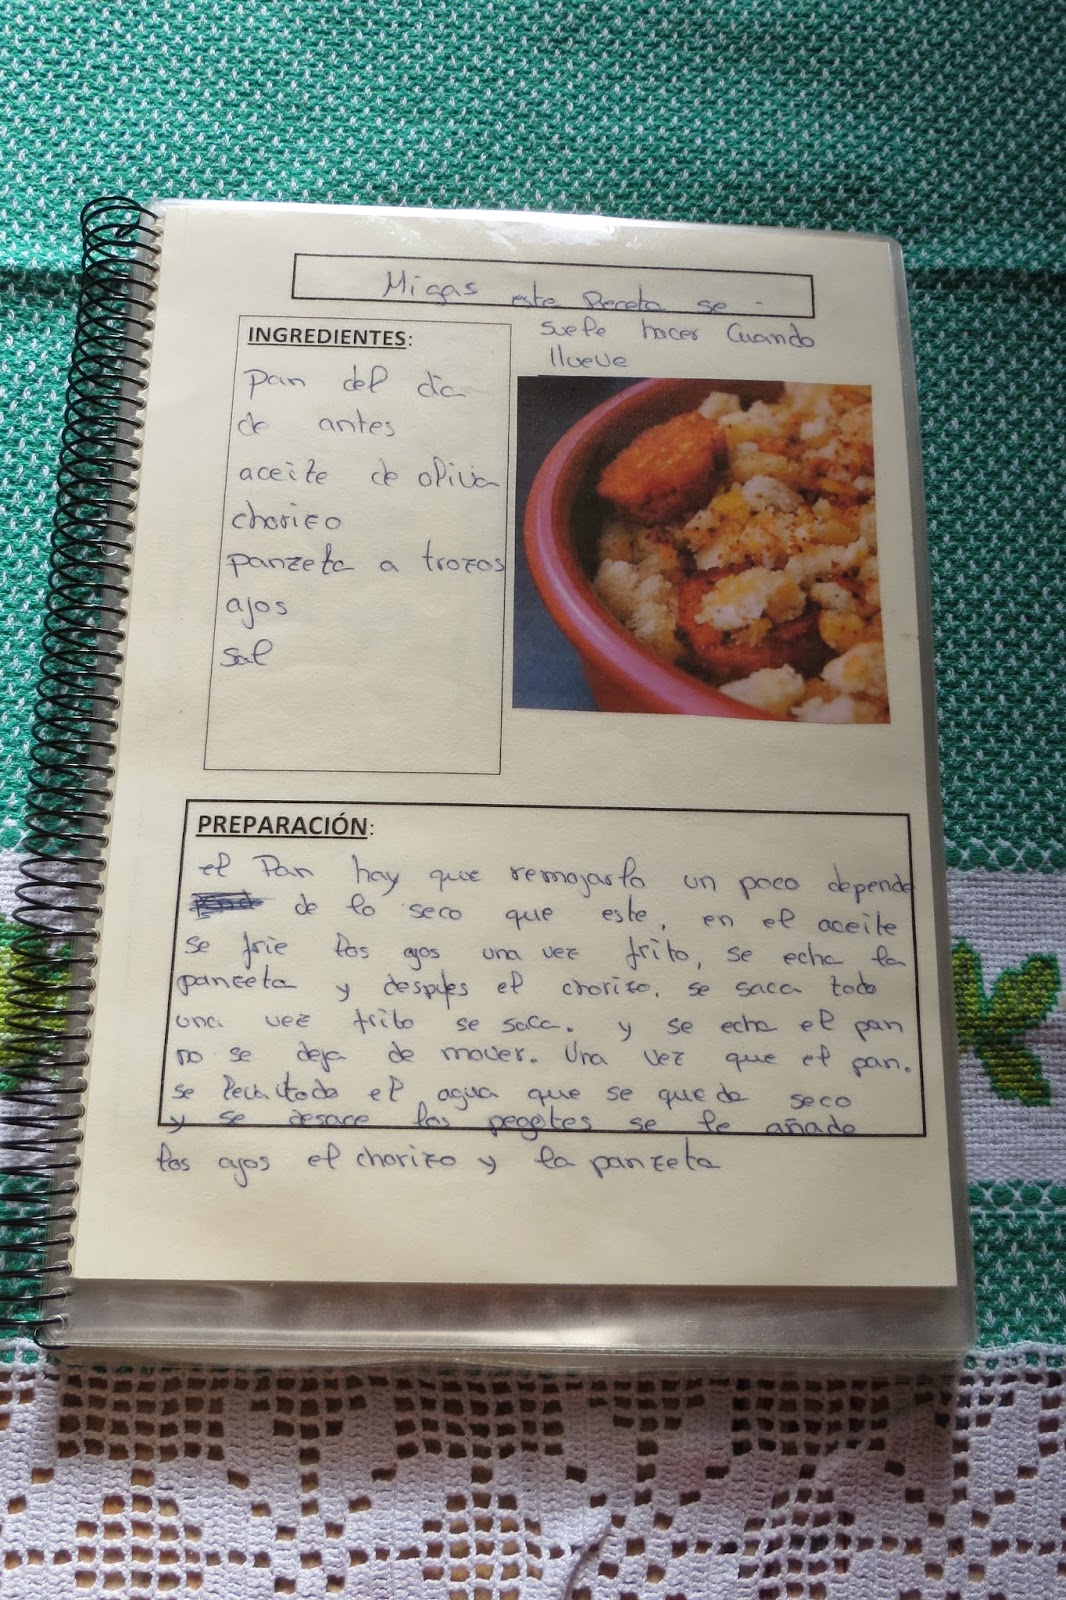 Migas este Receta se -
suele hacer Cuando
llueve
INGREDIENTES:
pan del dia
de antes
aceite de oliva
chorizo
panzeta a trozos
ajos
sal
PREPARACIÓN:
el Pan hay que remojarlo un poco depende
de lo seco que este, en el aceite
se frie los ajos una vez frito, se echa la
panzeta y despues el chorizo. se saca todo
una vez frito se saca. y se echa el pan
no se deja de mover. Una vez que el pan.
se el agua que se queda seco
y se desace los pegotes se le añade
los ajos el chorizo y la panzeta